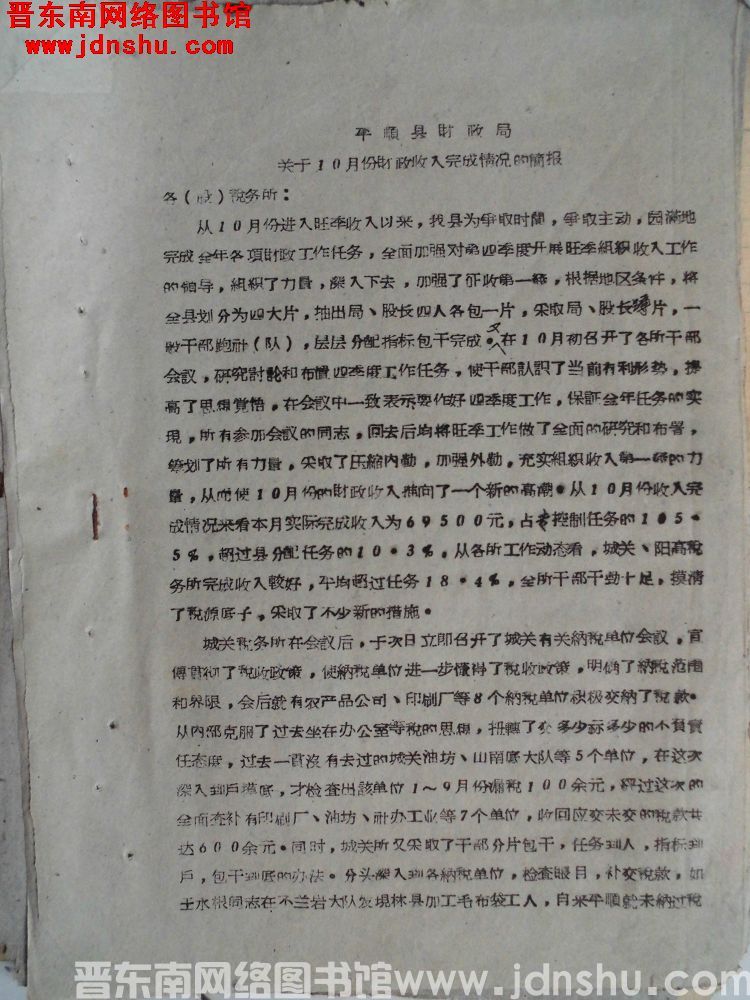 晋东南网络图书馆
www.jdnshu.com
平順县財政局
关于10月份財政收入完成情况的简报
各（政）税务所：
从10月份进入旺季收入以来，我县为争取时間，争取主动，园满地
完成全年各項財政工作任务，全面加强对第四季度开展旺季組织收入工作
的领导，組织了力量，深入下去，加强了征收第一綫，根据地区条件，将
全县划分为四大片，抽出局、股长四人各包一片，采取局、股长 片，一
般干部跑社（队），层层分配指标包干完成。又在10月初召开了各所干部
会议，研究討論和布置四季度工作任务，使干部認识了当前有利形势，提
高了思想覚悟，在会议中一致表示要作好四季度工作，保証全年任务的实
現，所有参加会议的同志，回去后均将旺季工作做了全面的研究和布署，
筹划了所有力量，采取了压縮内勤，加强外勤，充实組织收入第一綫的力
量，从而使10月份的財政收入推向了一个新的高潮。从10月份收入完
成情况来看本月实际完成收入为69500元，占专控制任务的105·
5%，超过县分配任务的10·3%，从各所工作动态看，城关、阳高税
务所完成收入較好，平均超过任务18·4%，全所干部干劲十足，摸清
了税源底子，采取了不少新的措施。
城关税务所在会议后，于次日立即召开了城关有关納税单位会议，宣
傳貫彻了税收政策，使納税单位进一步懂得了税收政策，明确了納税范围
和界限，会后就有农产品公司、印刷厂等8个納税单位积极交納了税款。
从内部克服了过去坐在办公室等税的思想，扭轉了交多少 多少的不負責
任态度，过去一貫没有去过的城关油坊、山南底大队等5个单位，在这次
深入到戶摸底，才检查出該单位1～9月份漏税100余元，經过这次的
全面查补有印刷厂、油坊、社办工业等7个单位，收回应交未交的税款共
达600余元。同时，城关所又采取了干部分片包干，任务到人，指标到
戶，包干到底的办法。分头深入到各納税单位，检查賬目，补交税款，如
王水根同志在不兰岩大队发現林县加工毛布袋工人，自来平順就未納过税
晋东南网络图书馆www.jdnshu.com